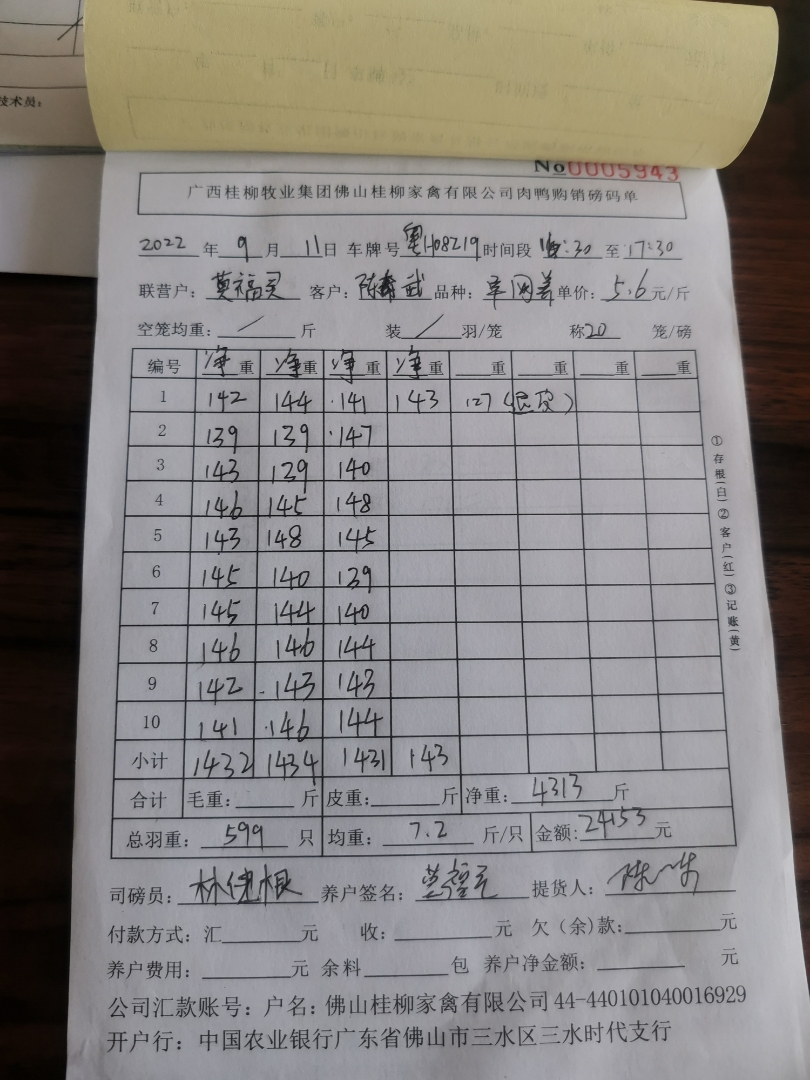 技术员:
No0005943
广西桂柳牧业集团佛山桂柳家禽有限公司肉鸭购销磅码单
2022 年 9 月 11 日 车牌号 粤H08219 时间段 16:30 至 17:30
联营户: 莫福灵 客户: 陈 武 品种: 单价: 5.6 元/斤
空笼均重: / 斤 装 / 羽/笼 称 20 笼/磅
编号 净重 净重 净重 净重 重 重 重 重
1 142 144 141 143 127 (退皮)
2 139 139 147
3 143 139 140
4 146 145 148
5 143 148 145
6 145 140 139
7 145 144 140
8 146 146 144
9 142 143 143
10 141 146 144
小计 1432 1434 1431 143
合计 毛重: 斤 皮重: 斤 净重: 4313 斤
总羽重: 599 只 均重: 7.2 斤/只 金额: 24153 元
司磅员: 林健根 养户签名: 提货人:
付款方式: 汇 元 收: 元 欠(余)款: 元
养户费用: 元 余料 包 养户净金额: 元
公司汇款账号: 户名: 佛山桂柳家禽有限公司 44-440101040016929
开户行: 中国农业银行广东省佛山市三水区三水时代支行
①存根(白)②客户(红)③记账(黄)